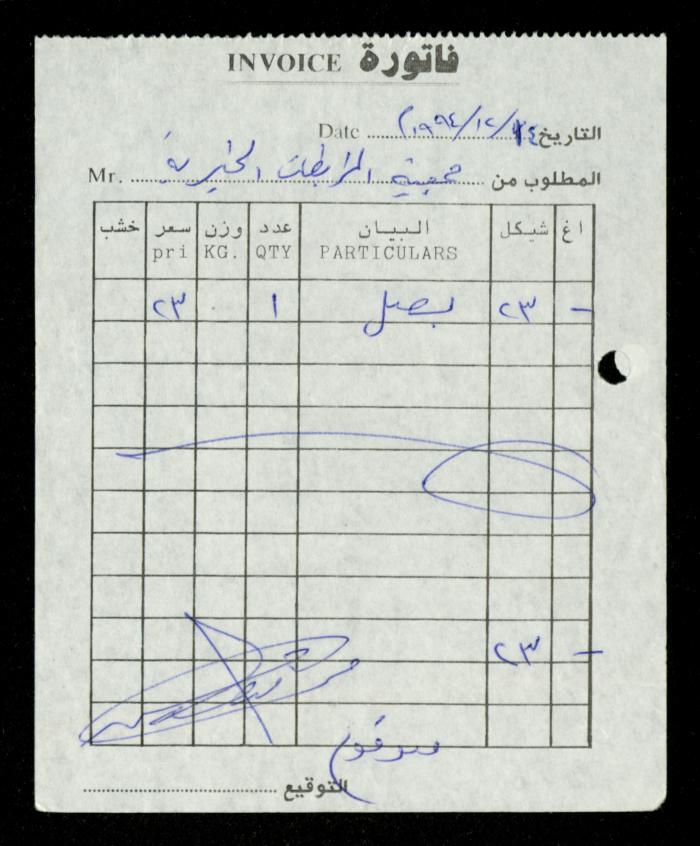 INVOICE فاتورة
التاريخ ١٤/١٢/١٩٩٤ Date
المطلوب من جمعية المرابطات الخيرية Mr.
اغ شيكل البيان عدد وزن سعر خشب
PARTICULARS QTY KG. pri
- ٢٣ بصل ١ ٢٣
- ٢٣
مدفوع
التوقيع